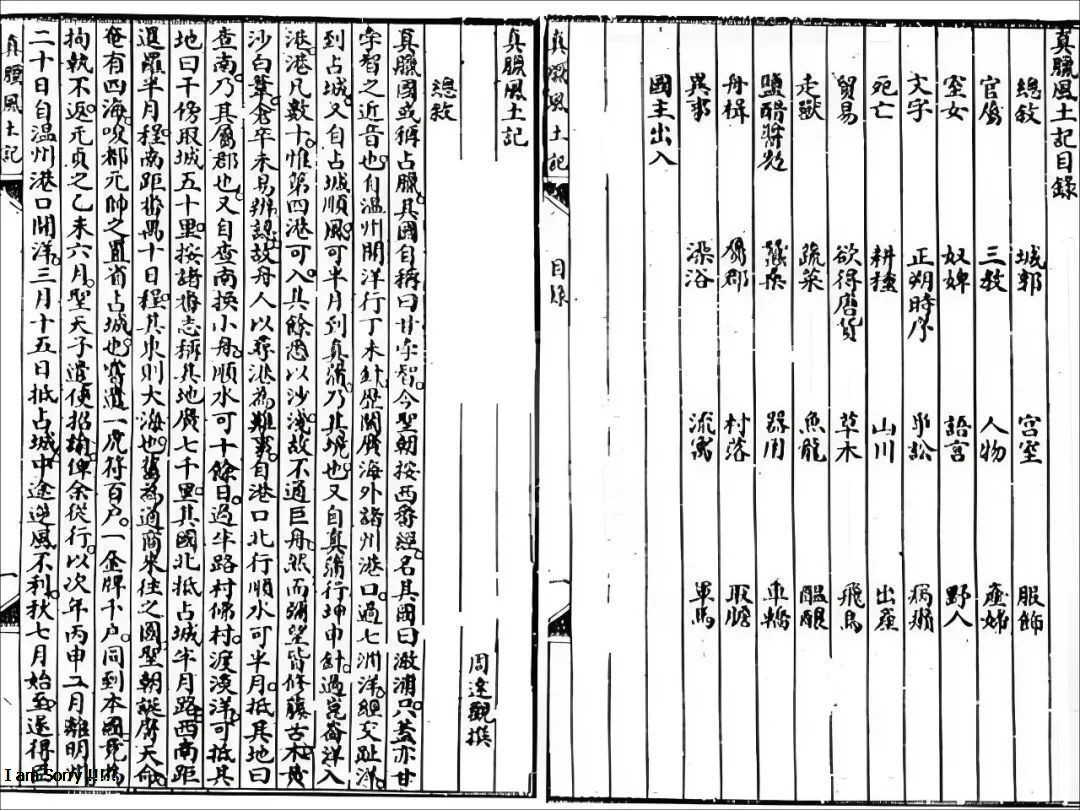 真臘風土記目錄
總敘 城郭 宮室 服飾
官屬 三教 人物 產婦
室女 奴婢 語言 野人
文字 正朔時序 爭訟 病癩
死亡 耕種 山川 出產
貿易 欲得唐貨 草木 飛鳥
走獸 蔬菜 魚龍 醞釀
鹽醋醬麪 蠶桑 器用 車轎
舟楫 屬郡 村落 取膽
異事 澡浴 流寓 軍馬
國主出入
真臘風土記 目錄 一
真臘風土記
周達觀撰
總敘
真臘國或稱占臘。其國自稱曰甘孛智。今聖朝按西番經。名其國曰澉浦只。蓋亦甘
孛智之近音也。自溫州開洋。行丁未針。歷閩廣海外諸州港口。過七洲洋。經交趾洋。
到占城。又自占城順風。可半月到真蒲。乃其境也。又自真蒲行坤申針。過崑崙洋入
港。港凡數十。惟第四港可入。其餘悉以沙淺。故不通巨舟。然而彌望皆修藤古木。黃
沙白葦。倉卒未易辨認。故舟人以尋港為難事。自港口北行。順水可半月。抵其地曰
查南。乃其屬郡也。又自查南換小舟。順水可十餘日。過半路村佛村。渡淡洋。可抵其
地曰干傍取城五十里。按諸番志稱其地廣七千里。其國北抵占城半月路。西南距
暹羅半月程。南距番禺十日程。其東則大海也。舊為通商來往之國。聖朝誕膺天命。
奄有四海。唆都元帥之置省占城也。嘗遣一虎符百戶。一金牌千戶。同到本國。竟為
拘執不返。元貞之乙未六月。聖天子遣使招諭。俾余從行。以次年丙申二月離明州。
二十日自溫州港口開洋。三月十五日抵占城。中途逆風不利。秋七月始至。遂得臣
真臘風土記 一
I am Sorry !!!!!